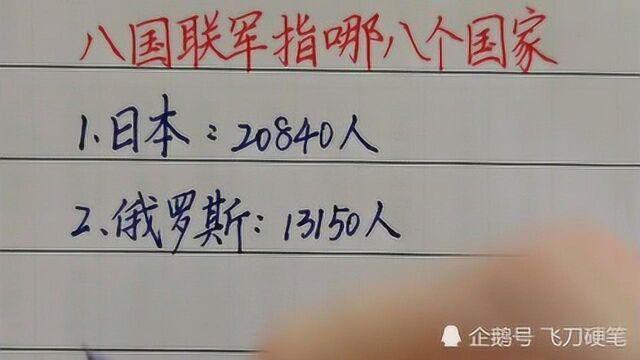 八国联军指哪八个国家
1.日本：20840人
2、俄罗斯：13150人
企鹅号 飞刀硬笔